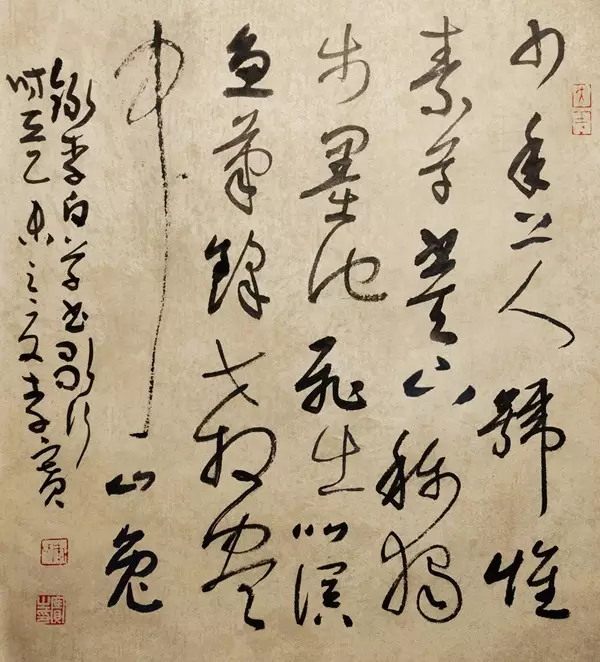 少年上人號懷
素草書天下稱獨
步墨池飛出北溟
魚筆鋒殺盡
中山兔
錄李白草書歌行
時在乙未之夏李